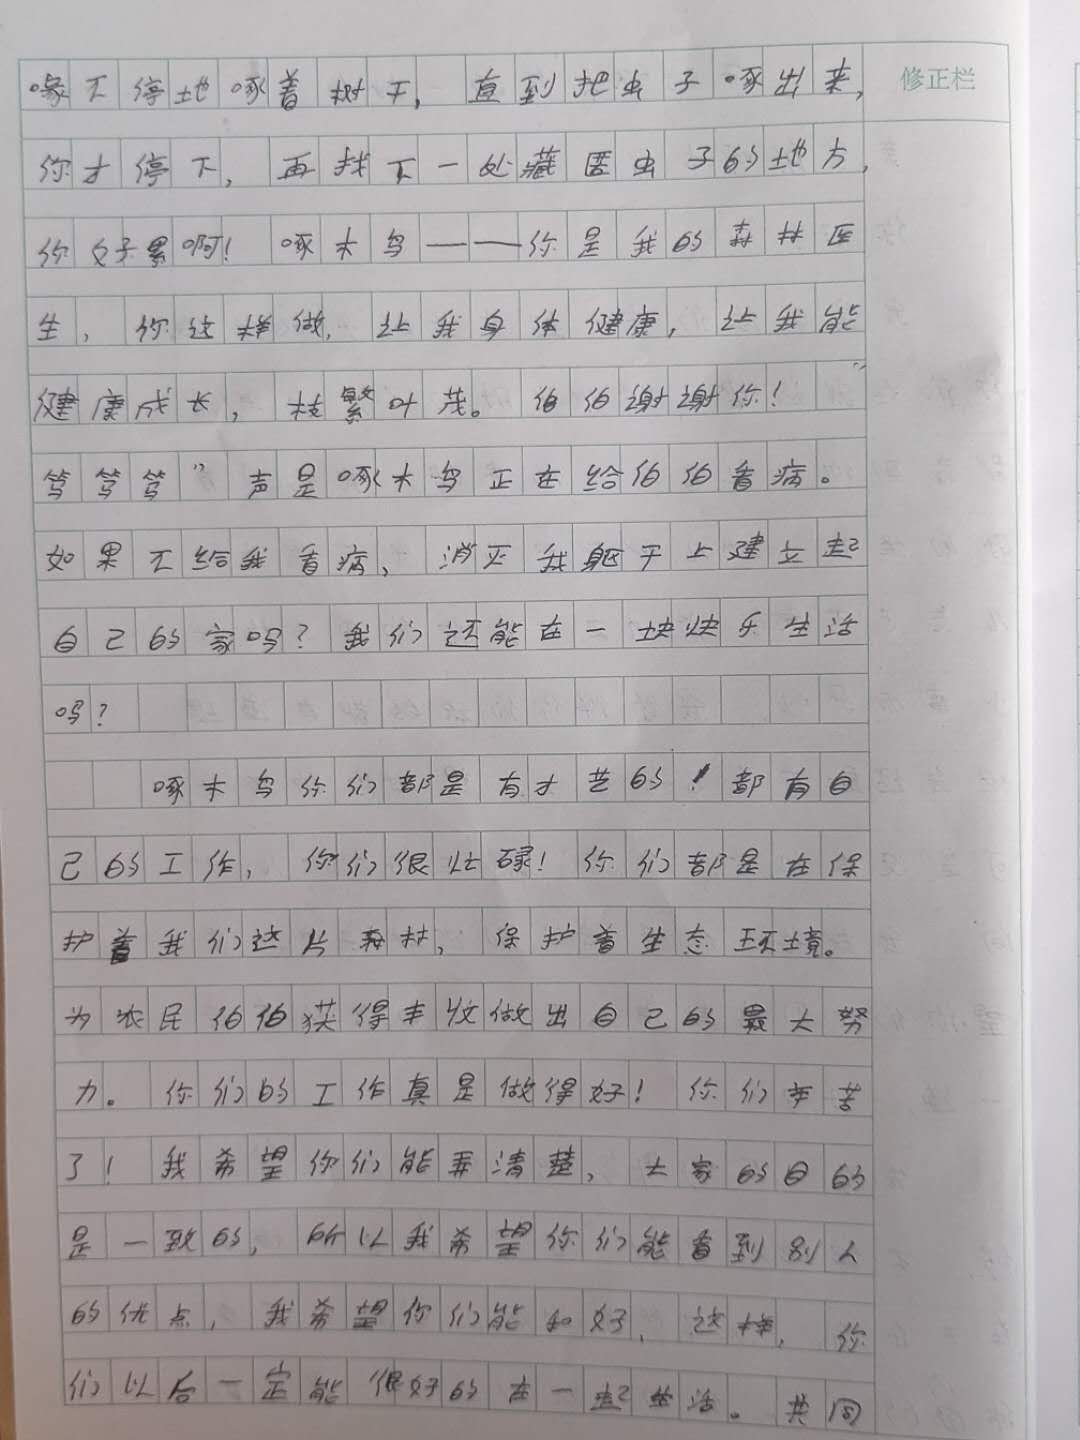 喙不停地啄着树干，直到把虫子啄出来，
修正栏
你才停下，再找下一处藏匿虫子的地方，
你好累啊！啄木鸟——你是我的森林医
生，你这样做，让我身体健康，让我能
健康成长，枝繁叶茂。伯伯谢谢你！”
笃笃笃”声是啄木鸟正在给伯伯看病。
如果不给我看病，消灭我躯干上建立起
自己的家吗？我们还能在一块快乐生活
吗？
啄木鸟你们都是有才艺的！都有自
己的工作，你们很忙碌！你们都是在保
护着我们这片森林，保护着生态环境。
为农民伯伯获得丰收做出自己的最大努
力。你们的工作真是做得好！你们辛苦
了！我希望你们能弄清楚，大家的目的
是一致的，所以我希望你们能看到别人
的优点，我希望你们能和好，这样，你
们以后一定能很好的在一起生活。共同